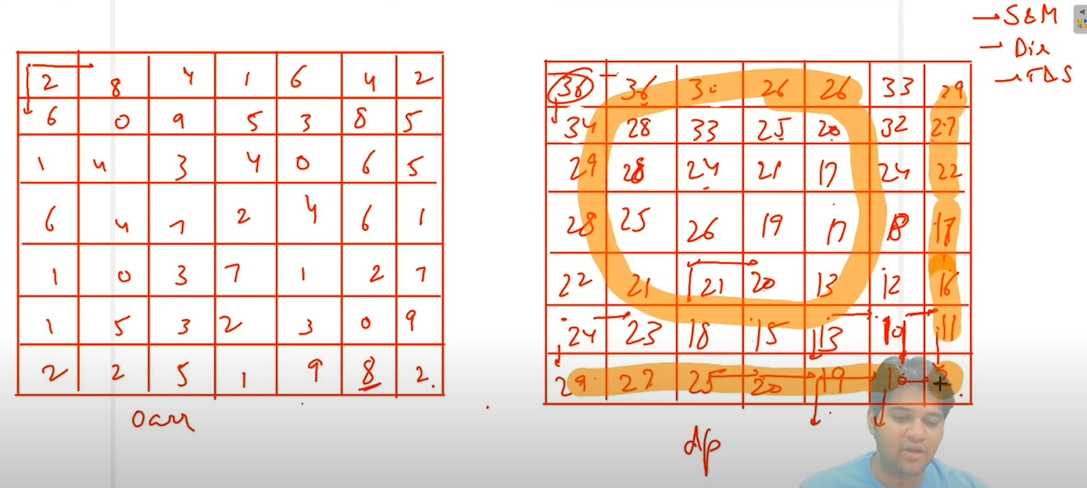 S&M
Dir
TDS
2 8 4 1 6 4 2
6 0 9 5 3 8 5
1 4 3 4 0 6 5
6 4 7 2 4 6 1
1 0 3 7 1 2 7
1 5 3 2 3 0 9
2 2 5 1 9 8 2.
oarr
36 36 30 26 26 33 29
34 28 33 25 20 32 27
29 28 24 21 17 24 22
28 25 26 19 17 18 17
22 21 21 20 13 12 16
24 23 18 15 13 10 11
29 27 25 20 19 10
dp